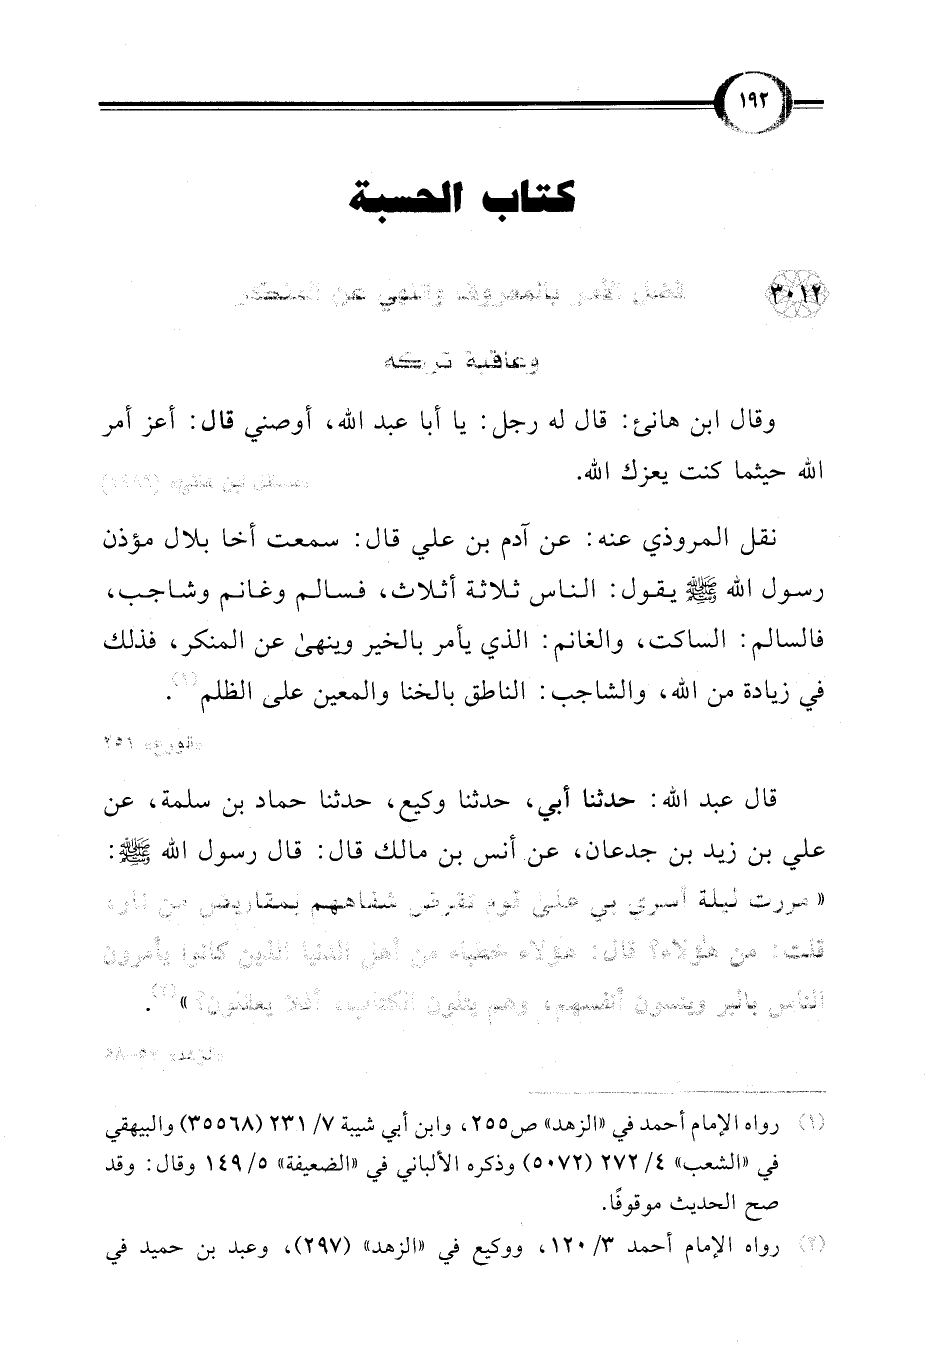 ١٩٢
كتاب الحسبة
٣٠١٢
فضل الأمر بالمعروف والنهي عن المنكر
وعاقبة تركه
وقال ابن هانئ: قال له رجل: يا أبا عبد الله، أوصني قال: أعز أمر
الله حيثما كنت يعزك الله.
«مسائل ابن هانئ»
نقل المروذي عنه: عن آدم بن علي قال: سمعت أخا بلال مؤذن
رسول الله ﷺ يقول: الناس ثلاثة أثلاث، فسالم وغانم وشاجب،
فالسالم: الساكت، والغانم: الذي يأمر بالخير وينهىٰ عن المنكر، فذلك
في زيادة من الله، والشاجب: الناطق بالخنا والمعين على الظلم(١).
«الورع» ٢٥٦
قال عبد الله: حدثنا أبي، حدثنا وكيع، حدثنا حماد بن سلمة، عن
علي بن زيد بن جدعان، عن أنس بن مالك قال: قال رسول الله ﷺ:
«مررت ليلة أسري بي علىٰ قوم تقرض شفاههم بمقاريض من نار،
قلت: من هؤلاء؟ قال: هؤلاء خطباء من أهل الدنيا الذين كانوا يأمرون
الناس بالبر وينسون أنفسهم، وهم يتلون الكتاب، أفلا يعقلون؟»(٢).
«الزهد»
(١) رواه الإمام أحمد في «الزهد» ص٢٥٥، وابن أبي شيبة ٧/ ٢٣١ (٣٥٥٦٨) والبيهقي
في «الشعب» ٤/ ٢٧٢ (٥٠٧٢) وذكره الألباني في «الضعيفة» ٥/ ١٤٩ وقال: وقد
صح الحديث موقوفًا.
(٢) رواه الإمام أحمد ٣/ ١٢٠، ووكيع في «الزهد» (٢٩٧)، وعبد بن حميد في